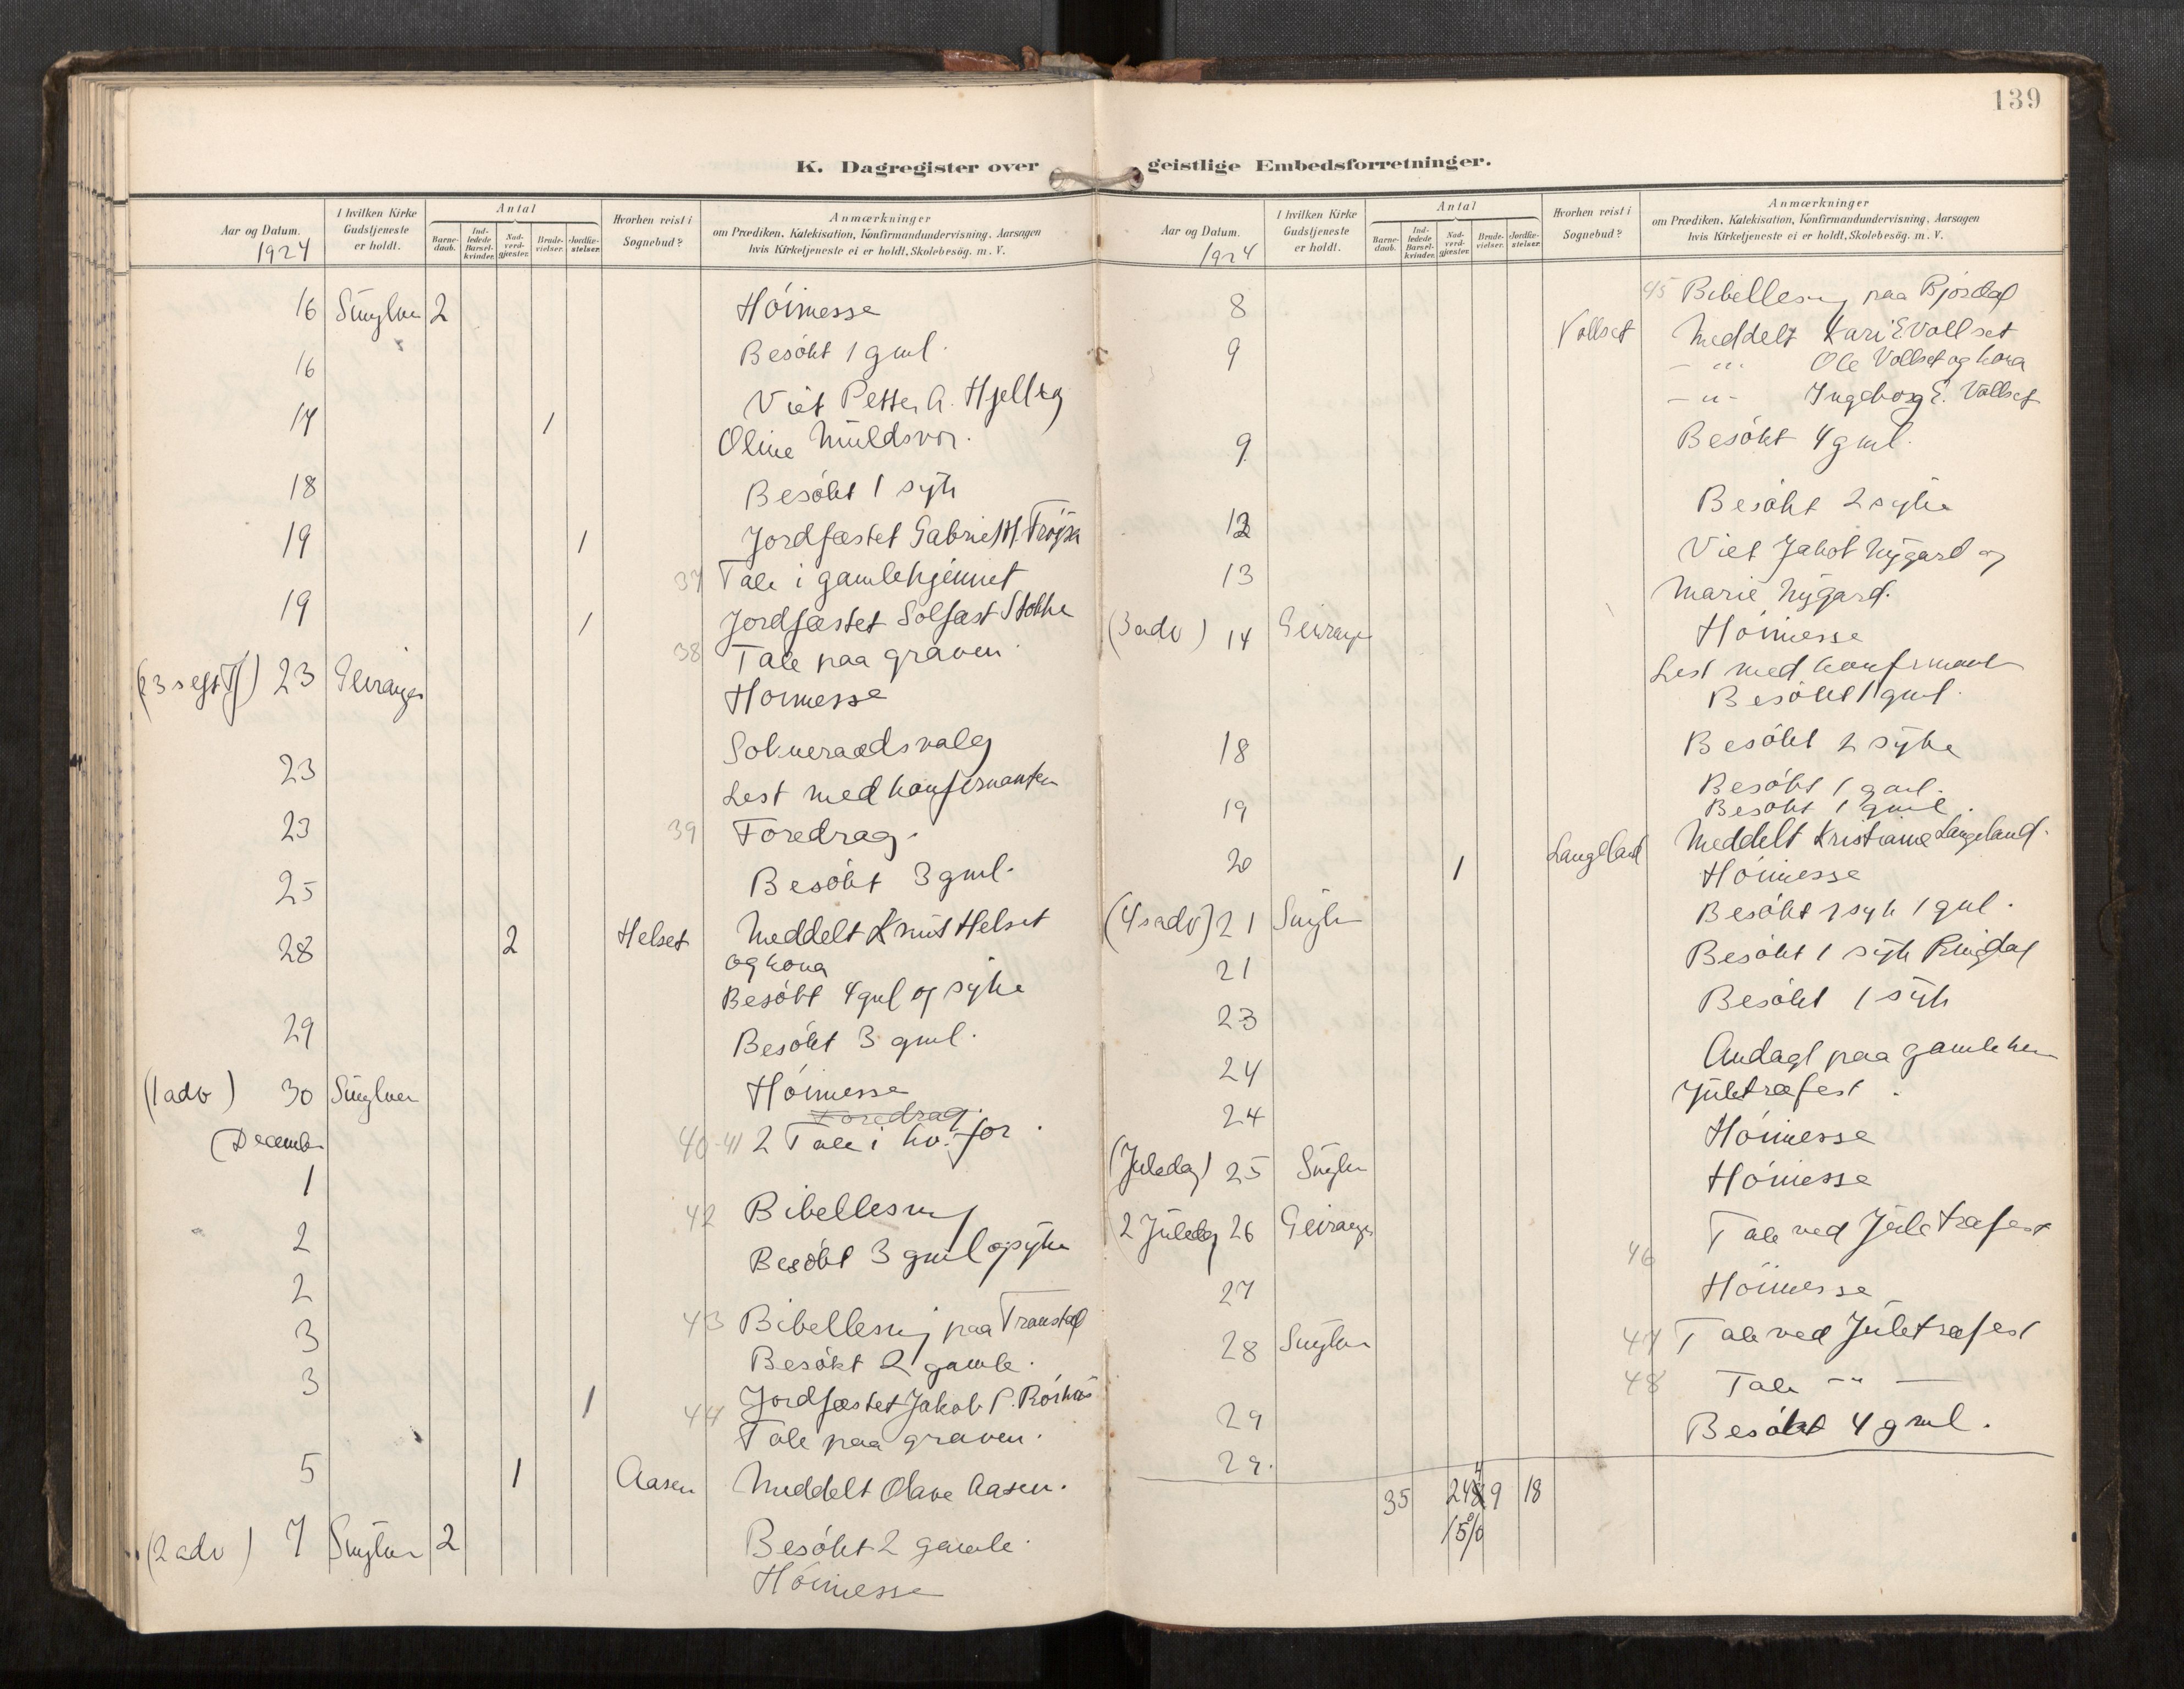 139
K. Dagregister over geistlige Embedsforretninger.
Aar og Datum.
1924
I hvilken Kirke Gudstjeneste er holdt.
Antal
Barnedaab.
Indledede Barselkvinder.
Nadverdgjæster.
Brudevielser.
Jordfæstelser.
Hvorhen reist i Sognebud?
Anmærkninger
om Prædiken, Katekisation, Konfirmandundervisning, Aarsagen
hvis Kirketjeneste ei er holdt, Skolebesög. m. V.
16 2 Höimesse
16 Besökt 1 gml.
17 1 Viet Petter A. Hjelle og
Oline Muldsvor.
18 Besökt 1 syk
19 1 Jordfæstet Gabriel H.
37 Tale i gamlehjemmet
19 1 Jordfæstet Solfast Stokke
38 Tale paa graven.
23 Geiranger Höimesse
23 Sokneraadsvalg
Lest med konfirmanten
23 39 Foredrag.
25 Besökt 3 gml.
28 2 Helset Meddelt Knut Helset
og kona
Besökt 4 gml og syke
29 Besökt 3 gml.
(1 adv) 30 Höimesse
Foredrag.
40-41 2 Tale i kv. for.
(December
1 42 Bibellesning
2 Besökt 3 gml og syke
2 43 Bibellesning paa
3 Besökt 2 gamle.
3 1 44 Jordfæstet Jakob P.
Tale paa graven.
5 1 Aasen Meddelt Olave Aasen.
Besökt 2 gamle.
(2 adv) 7 2 Höimesse
Aar og Datum.
1924
I hvilken Kirke Gudstjeneste er holdt.
Antal
Barnedaab.
Indledede Barselkvinder.
Nadverdgjæster.
Brudevielser.
Jordfæstelser.
Hvorhen reist i Sognebud?
Anmærkninger
om Prædiken, Katekisation, Konfirmandundervisning, Aarsagen
hvis Kirketjeneste ei er holdt, Skolebesög. m. V.
8 45 Bibellesning paa Bjørdal
9 Vollset Meddelt Kari E Vollset
- " - Ole Vollset og kona
- " - Ingeborg E. Vollset
9 Besökt 4 gml.
12 Besökt 2 syke
13 Viet Jakob Nygard og
Marie Nygard.
(3 adv) 14 Geiranger Höimesse
Lest med konfirmant
Besökt 1 gml.
18 Besökt 2 syke
19 Besökt 1 gml.
Besökt 1 gml.
20 1 Langeland Meddelt Kristiane Langeland.
(4 s adv) 21 Höimesse
21 Besökt 1 syk 1 gml.
23 Besökt 1 syk Ringdal
24 Besökt 1 syk
24 Andagt paa gamlehem
Juletræfest.
(Juledag) 25 Höimesse
2 Juledag 26 Geiranger Höimesse
27 46 Tale ved Juletræfest
28 Höimesse
29 47 Tale ved Juletræfest
48 Tale - " -
29. Besökt 4 gml.
35 9 18